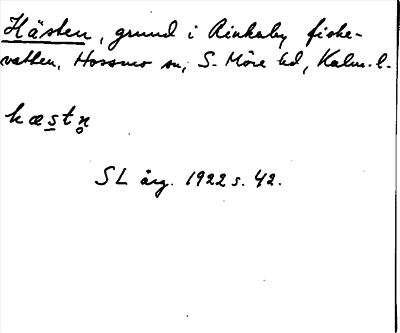 Hästen, grund i Rinkaby fiske-
vatten, Hossmo sn, S. Möre hd, Kalm. l.
hæstn̥
SL årg. 1922 s. 42.